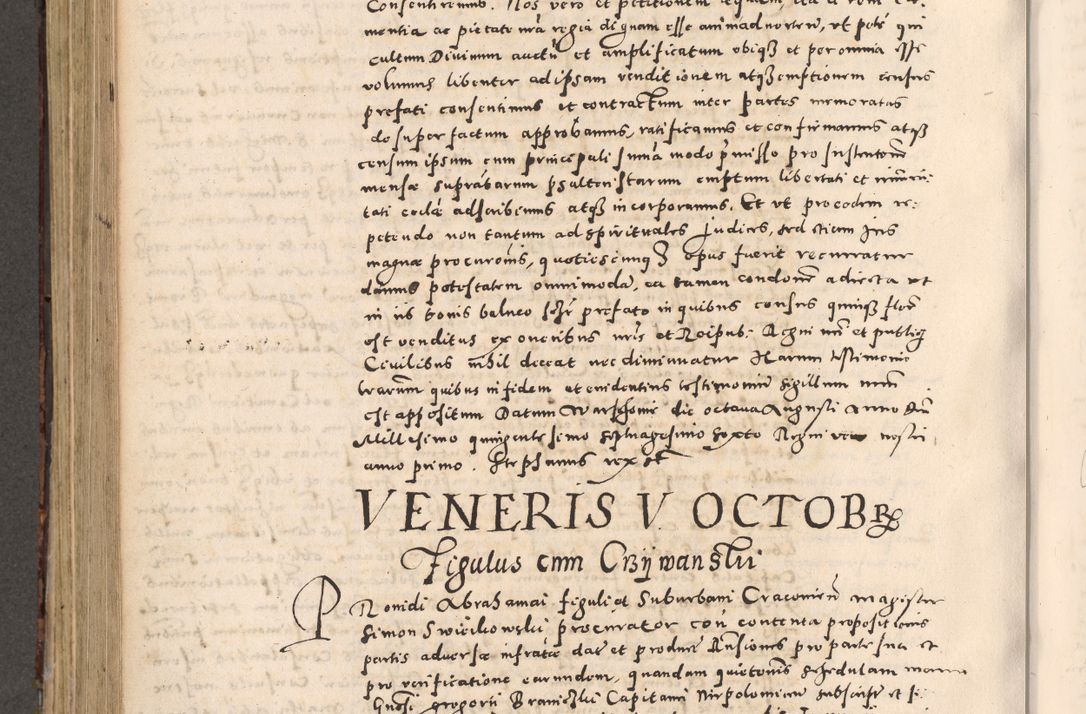 Consentiremus. Nos vero et petitionem
mentia ac pietate nrã regia dignam esse animadvertere, vt pote qui
cultum Divinum auctũ et amplificatum vbiqȝ et per omnia esse
volumus libenter ad ipsam venditionem atqȝ emptionem census
prefati consentimus et contractum inter partes memoratas
desuper factum approbamus, ratificamus et confirmamus atqȝ
censum ipsum cum principali suma modo pmisso pro sustentone
mensæ suprabarum psalteristarum emptum libertati et
tati ecclæ adscribimus atqȝ incorporamus. Et vt pro eodem re-
petendo non tantum ad spirituales Judices, sed etiam
magnæ procuronis, quotiescunqȝ opus fuerit recurratur
damus potestatem omnimodã, ea tamen condone adiecta vt
in iis bonis balneo prefato in quibus census quinqȝ flor
est venditus ex oneribus nris et Reipub: Regni nri et publicis
Civilibus nihil deceat nec diminuatur Harum testimonio
trarum quibus in fidem et evidentius testimonium sigillum nrum
est appositum Datum Warschoviæ die octava Augusti Anno Dni
Millesimo quingentesimo septuagesimo sexto Regni vero nostri
anno primo. Stephanus rex sst
VENERIS V. OCTOBR
Figulus cum Crzÿwanskii
Providi Abrahamai figuli et Suburbani Cracovien magister
Simon Swiẽtkowskii procurator con contenta propositionis
partis adversæ infratæ dat et producit Ansiones pro parte sua et
pro verificatione earundem, quandam quietonis schedulam manu
Gnosi gregorii Braniczkii Capitanei Niepolomicen subscript et s